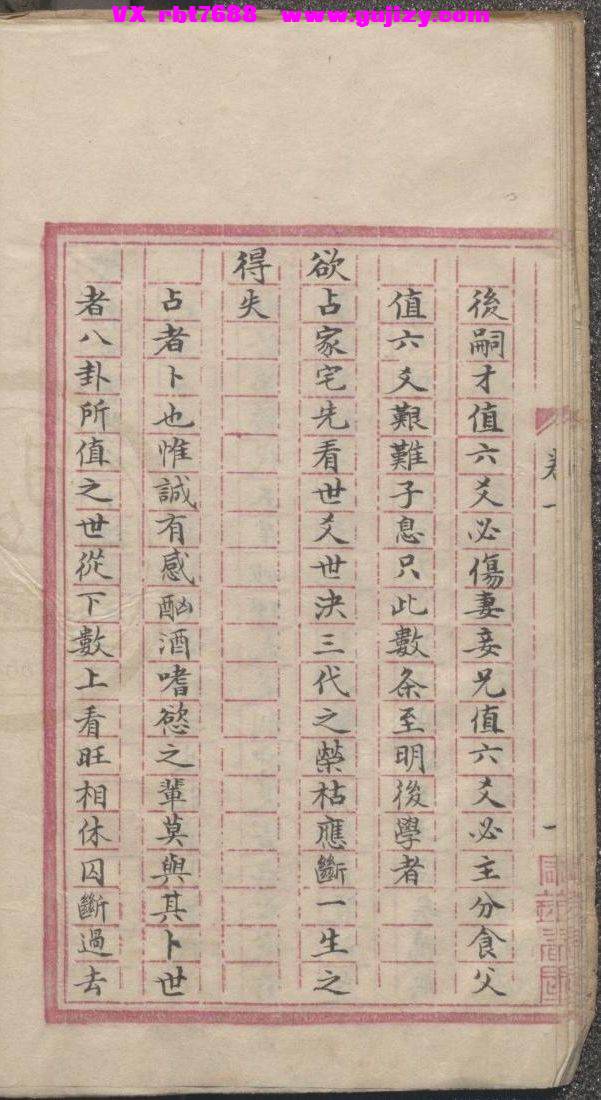 VX rbt7688 www.gujizy.com
卷一
一
後嗣才值六爻必傷妻妾兄值六爻必主分食父
值六爻艱難子息只此數条至明後學者
欲占家宅先看世爻世決三代之榮枯應斷一生之
得失
占者卜也惟誠有感酗酒嗜慾之輩莫與其卜世
者八卦所值之世從下數上看旺相休囚斷過去